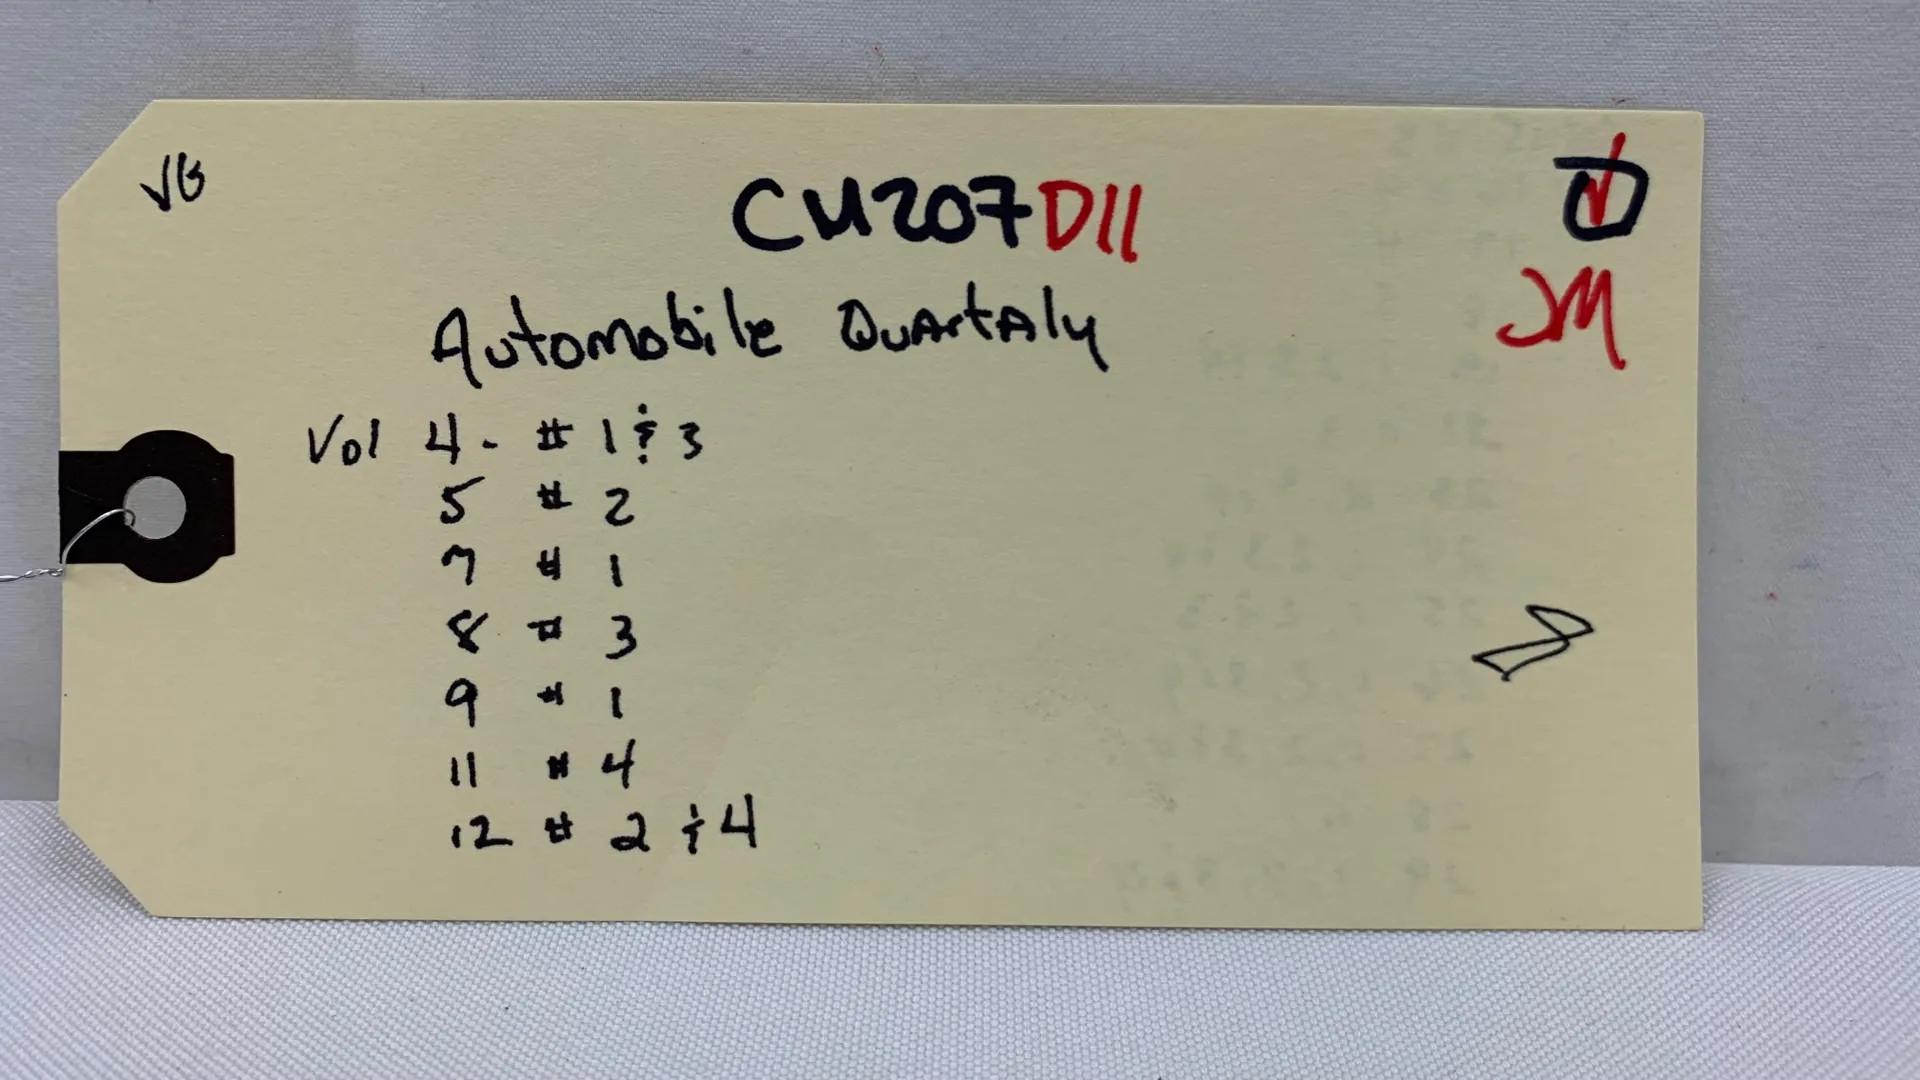 VG
CM207D11
JM
Automobile Quartaly
Vol 4 - # 1 & 3
5 # 2
7 # 1
8 # 3
9 # 1
11 # 4
12 # 2 & 4